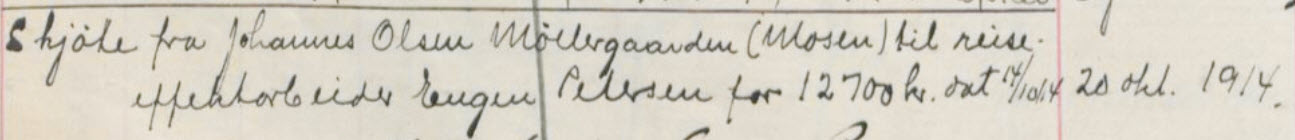 Skjöte fra Johannes Olsen Möllergaarden (Mosen) til reise-
effektarbeider Eugen Petersen for 12700 kr. dat 14/10 14 20 okt. 1914.